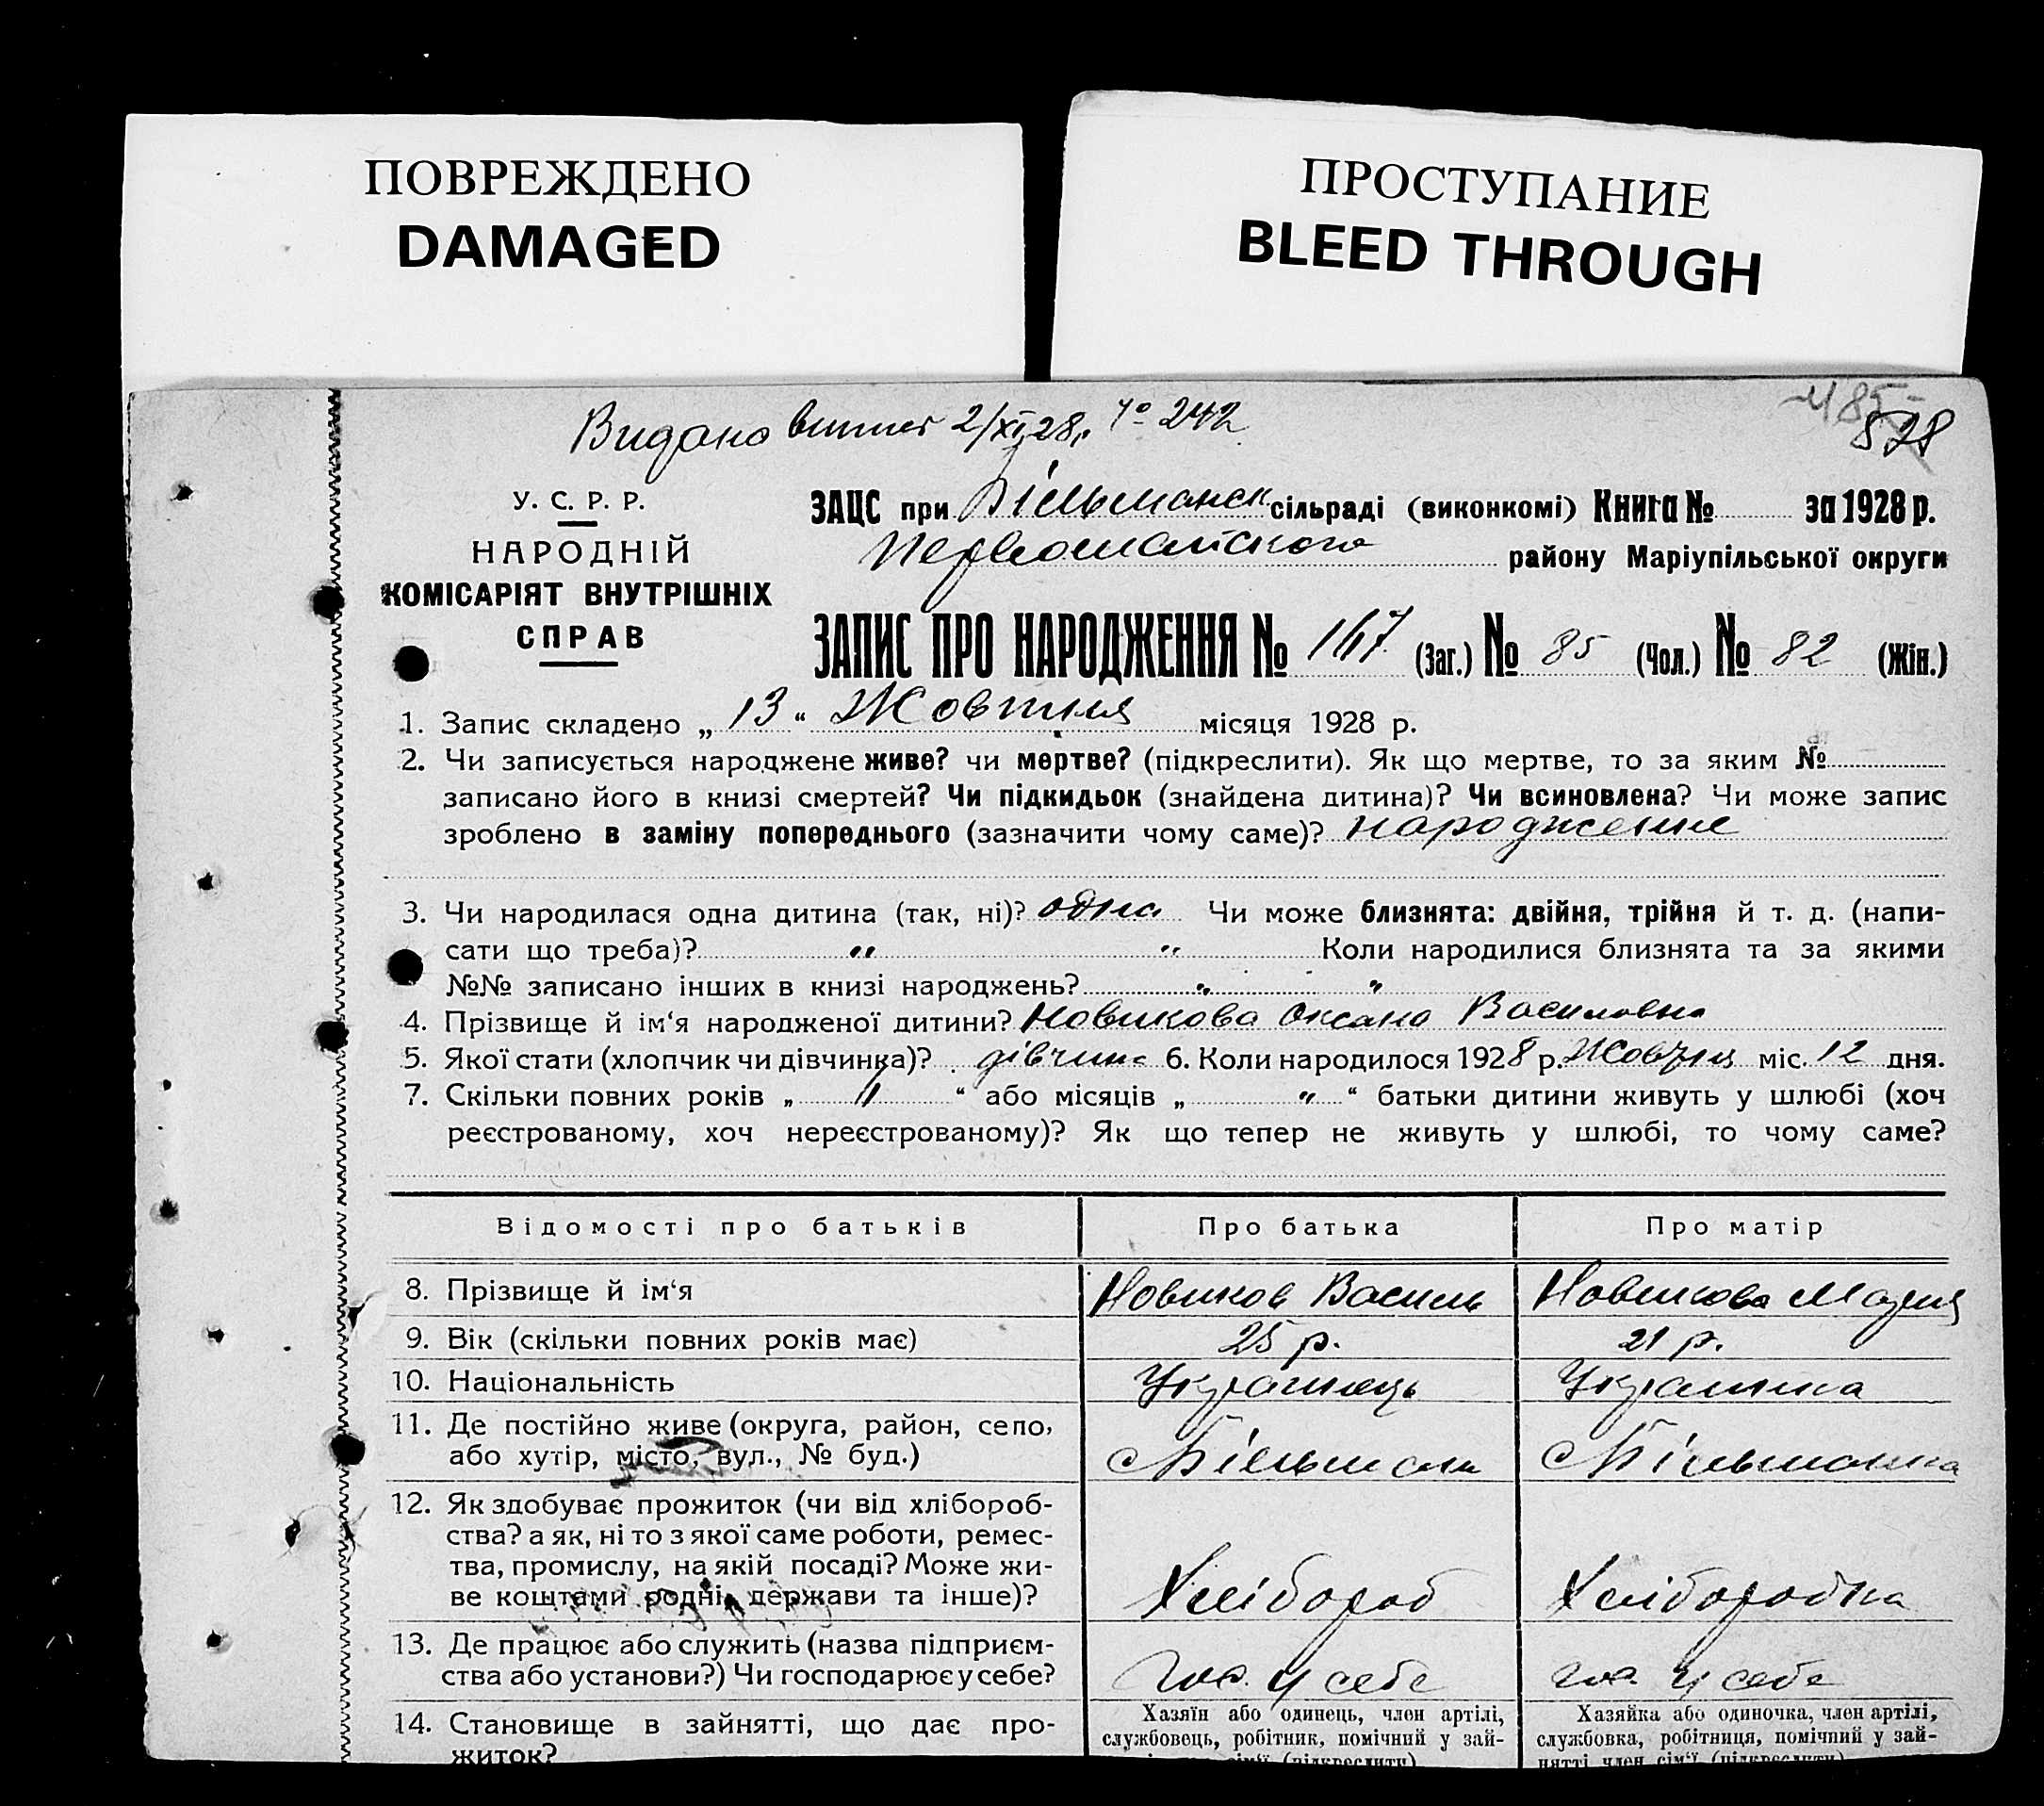 ПОВРЕЖДЕНО
DAMAGED
ПРОСТУПАНИЕ
BLEED THROUGH
485
828
Видано 2/XI 28р. № 242
У. С. Р. Р.
НАРОДНІЙ
КОМІСАРІЯТ ВНУТРІШНІХ
СПРАВ
ЗАЦС при Більманск сільраді (виконкомі) Книга № за 1928 р.
Первомайского району Маріупільської округи
ЗАПИС ПРО НАРОДЖЕННЯ № 167 (Заг.) № 85 (Чол.) № 82 (Жін.)
1. Запис складено „ 13 “ Жовтня місяця 1928 р.
2. Чи записується народжене живе? чи мертве? (підкреслити). Як що мертве, то за яким №
записано його в книзі смертей? Чи підкидьок (знайдена дитина)? Чи всиновлена? Чи може запис
зроблено в заміну попереднього (зазначити чому саме)? народження
3. Чи народилася одна дитина (так, ні)? одна Чи може близнята: двійня, трійня й т. д. (напи-
сати що треба)? " " Коли народилися близнята та за якими
№№ записано інших в книзі народжень? " "
4. Прізвище й ім‘я народженої дитини? Новикова Оксана Василовна
5. Якої стати (хлопчик чи дівчинка)? дівчина 6. Коли народилося 1928 р. Жовтня міс. 12 дня.
7. Скільки повних років „ " “ або місяців „ " “ батьки дитини живуть у шлюбі (хоч
реєстрованому, хоч нереєстрованому)? Як що тепер не живуть у шлюбі, то чому саме?
Відомості про батьків Про батька Про матір
8. Прізвище й ім‘я Новиков Василь Новикова Мария
9. Вік (скільки повних років має) 25 р. 21 р.
10. Національність Українець Українка
11. Де постійно живе (округа, район, село,
або хутір, місто, вул., № буд.) с Більманка с Більманка
12. Як здобуває прожиток (чи від хлібороб-
ства? а як, ні то з якої саме роботи, ремес-
тва, промислу, на якій посаді? Може жи-
ве коштами родні, держави та інше)? Хлібороб Хліборобка
13. Де працює або служить (назва підприєм-
ства або установи?) Чи господарює у себе? гос. у себе гос. у себе
14. Становище в зайнятті, що дає про-
житок?
Хазяїн або одинець, член артілі,
службовець, робітник, помічний у зай-
Хазяйка або одиночка, член артілі,
службовка, робітниця, помічний у зай-
нятті член сім‘ї (підкреслити)